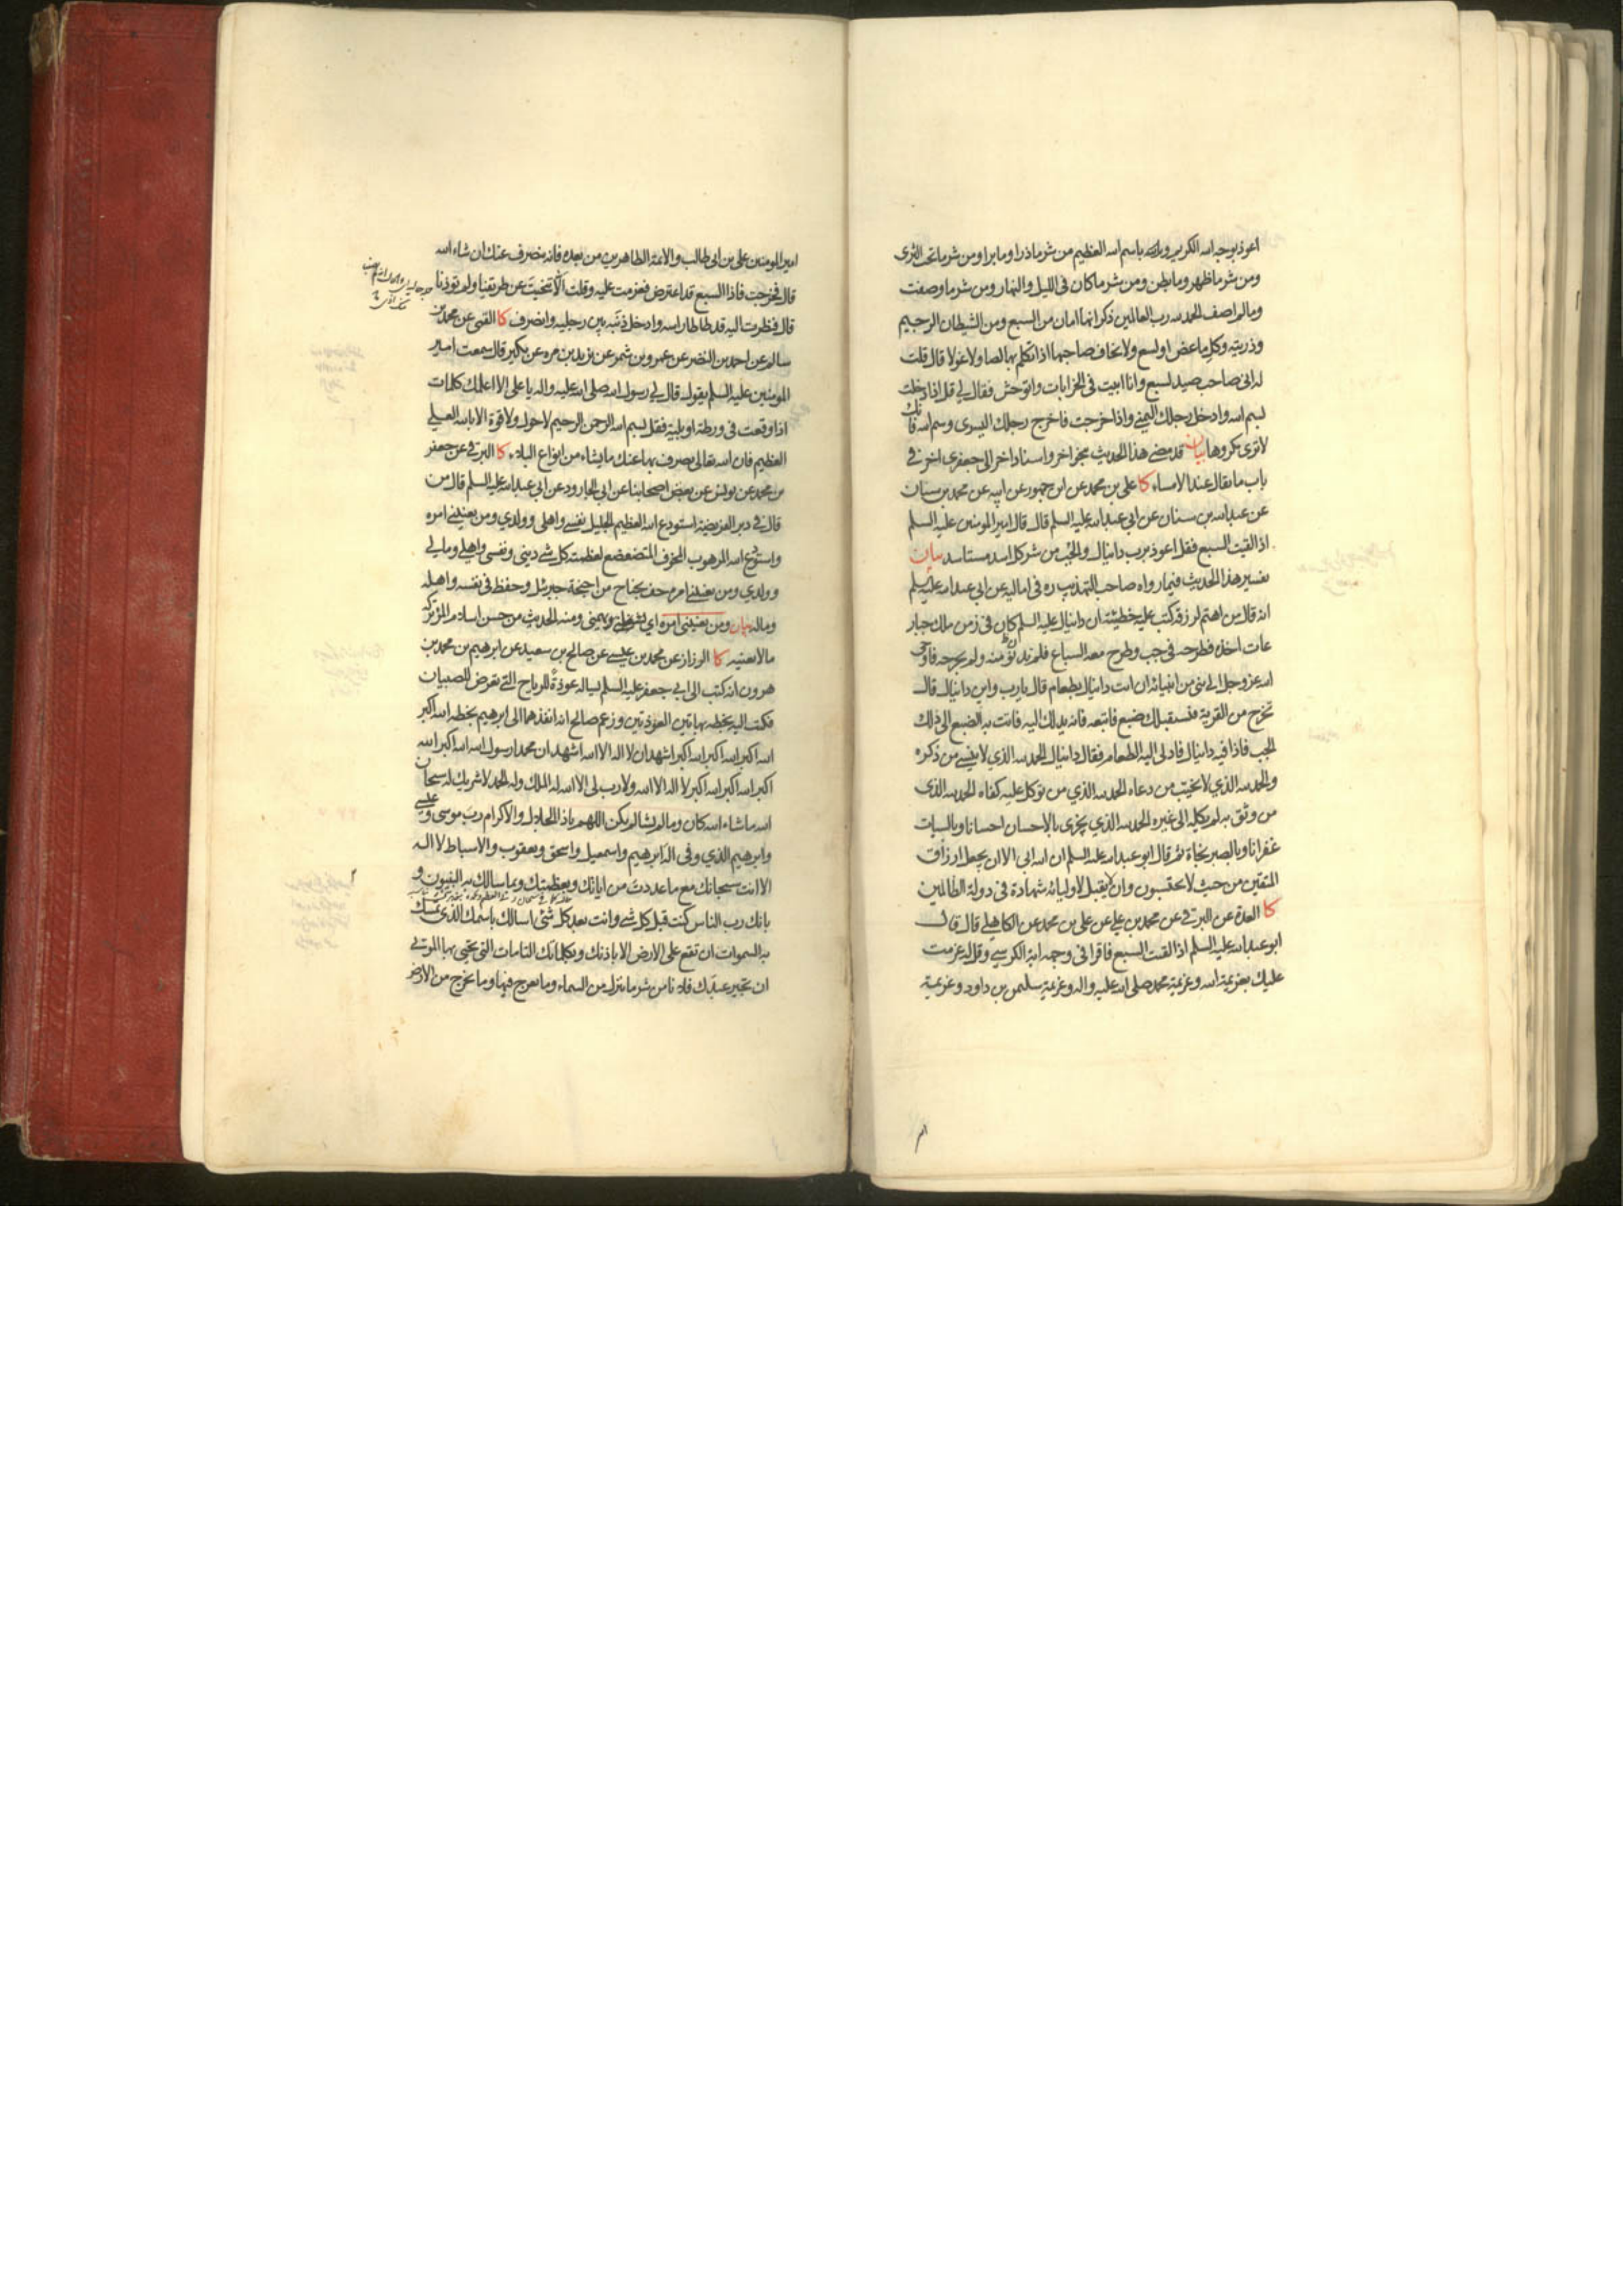 اعوذ بوجه الله الكريم و باسم الله العظيم من شر ما ذرا و ما برا و من شر ما تحت الثرى
و من شر ما ظهر و ما بطن و من شر ما كان فى الليل و النهار و من شر ما وصفت
و ما لم اصف الحمد لله رب العالمين ذكر انها امان من السبع و من الشيطان الرجيم
و ذريته و كل ما عض او لسع و لا يخاف صاحبها اذا تكلم بها لصا و لا غولا قال قلت
له انى صاحب صيد لسبع و انا ابيت فى الخرابات و اتوحش فقال لي قل اذا دخلت
بسم الله و ادخل رجلك اليمنى و اذا خرجت فاخرج رجلك اليسرى و سم الله فانك
لا ترى مكروها بيان قد مضى هذا الحديث مجز اخر و اسناد اخر الى جعفرى اخر في
باب ما يقال عند الامساء كا على بن محمد عن ابن جمهور عن ابيه عن محمد بن سنان
عن عبدالله بن سنان عن ابي عبدالله عليه السلم قال قال امير المومنين عليه السلم
اذا لقيت السبع فقل اعوذ برب دانيال و الجب من شر كل اسد مستاسد بيان
تفسير هذا الحديث فيما رواه صاحب التهذيب ره فى اماليه عن ابي عبدالله عليه السلم
انه قال من اهتم لرزقه كتب عليه خطيئة ان دانيال عليه السلم كان فى زمن ملك جبار
عات اخذه فطرحه فى جب و طرح معه السباع فلم تدن منه و لم يجرحه فاوحى
الله عز و جل الى نبى من انبيائه ان ائت دانيال بطعام قال يا رب و اين دانيال قال
تخرج من القرية فيستقبلك ضبع فاتبعه فانه يدلك اليه فاتت به الضبع الى ذلك
الجب فاذا فيه دانيال فادلى اليه الطعام فقال دانيال الحمد لله الذي لا ينسى من ذكره
و الحمد لله الذي لا يخيب من دعاه الحمد لله الذي من توكل عليه كفاه الحمد لله الذى
من وثق به لم يكله الى غيره الحمد لله الذي يجزى بالاحسان احسانا و بالسيات
غفرانا و بالصبر نجاة ثم قال ابو عبدالله عليه السلم ان الله ابى الا ان يجعل ارزاق
المتقين من حيث لا يحتسبون و ان لا يقبل لاوليائه شهادة فى دولة الظالمين
كا العدة عن البرقي عن محمد بن علي عن على بن محمد عن الكاهلي قال قال
ابو عبدالله عليه السلم اذا لقيت السبع فاقرا فى وجهه اية الكرسي و قل له عزمت
عليك بعزيمة الله و عزيمة محمد صلى الله عليه و اله و عزيمة سليمن بن داود و عزيمة
امير المومنين على بن ابي طالب و الائمة الطاهرين من بعده فانه ينصرف عنك ان شاء الله
قال فخرجت فاذا السبع قد اعترض فعزمت عليه و قلت الا تنحيت عن طريقنا و لم توذنا
قال فنظرت اليه قد طاطا راسه و ادخل ذنبه بين رجليه و انصرف كا القمى عن محمد بن
سالم عن احمد بن النضر عن عمرو بن شمر عن يزيد بن مره عن بكير قال سمعت امير
المومنين عليه السلم يقول قال لي رسول الله صلى الله عليه و اله يا على الا اعلمك كلمات
اذا وقعت فى ورطة او بلية فقل بسم الله الرحمن الرحيم لا حول و لا قوة الا بالله العلي
العظيم فان الله تعالى يصرف بها عنك ما يشاء من انواع البلاء كا البرقي عن جعفر
بن محمد عن يونس عن بعض اصحابنا عن ابى الجارود عن ابي عبدالله عليه السلم قال من
قال فى دبر الفريضة استودع الله العظيم الجليل نفسي و اهلى و ولدي و من يعنيني امره
و استودع الله المرهوب المخوف المتضعضع لعظمته كل شي دينى و نفسى و اهلي و مالي
و ولدي و من يعنيني امره حف بجناح من اجنحة جبرئل و حفظ فى نفسه و اهله
و ماله بيان و من يعنيني امره اي و يهمنى و منه الحديث من حسن اسلام المرء تركه
ما لا يعنيه كا الرزاز عن محمد بن عيسى عن صالح بن سعيد عن ابرهيم بن محمد بن
هرون انه كتب الى ابي جعفر عليه السلم يساله عوذة للرياح التى تعرض للصبيان
فكتب اليه بخطه بهاتين العوذتين و زعم صالح انه انفذهما الى ابرهيم بخطه الله اكبر
الله اكبر الله اكبر الله اكبر اشهد ان لا اله الا الله اشهد ان محمدا رسول الله الله اكبر الله
اكبر الله اكبر الله اكبر لا اله الا الله و لا رب لى الا الله له الملك و له الحمد لا شريك له سبحان
الله ما شاء الله كان و ما لم يشا لم يكن اللهم يا ذا الجلال و الاكرام رب موسى و عيسى
و ابرهيم الذي وفى اله ابرهيم و اسمعيل و اسحق و يعقوب و الاسباط لا اله
الا انت سبحانك مع ما عددت من اياتك و بعظمتك و بما سالك به النبيون و
بانك رب الناس كنت قبل كل شي و انت بعد كل شئ اسالك باسمك الذى تمسك
به السموات ان تقع على الارض الا باذنك و بكلماتك التامات التى تحيى بها الموتى
ان تجير عبدك فلانا من شر ما ينزل من السماء و ما يعرج فيها و ما يخرج من الارض